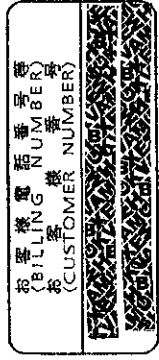 お客様電話番号等
(BILLING NUMBER)
お客様番号
(CUSTOMER NUMBER)